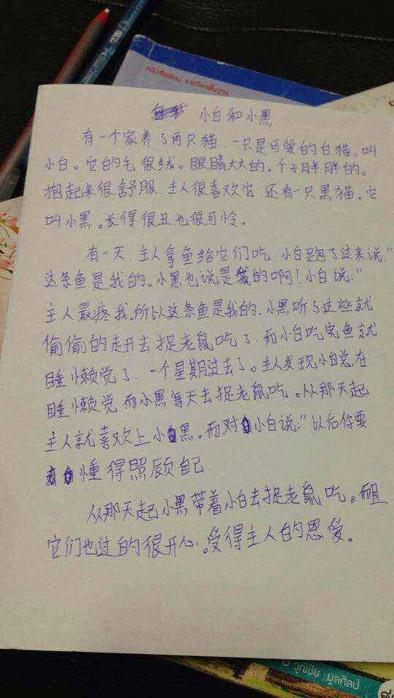 小白和小黑
有一个家养了两只猫.一只是可爱的白猫.叫
小白。它的毛很绒。眼睛大大的。个子胖胖的。
抱起来很舒服.主人很喜欢它.还有一只黑猫。它
叫小黑。长得很丑也很可怜。
有一天.主人拿鱼给它们吃.小白跑了过来说,"
这条鱼是我的。小黑也说是我的啊!小白说."
主人最疼我.所以这条鱼是我的.小黑听了这些就
偷偷的走开去捉老鼠吃了.而小白吃完鱼就
睡懒觉了.一个星期过去了。主人发现小白总在
睡懒觉.而小黑每天去捉老鼠吃.从那天起
主人就喜欢上小黑.而对小白说."以后你要
懂得照顾自己.
从那天起小黑带着小白去捉老鼠吃。
它们也过的很开心.受得主人的恩爱。
วุฒิชัย มูลศิลป์